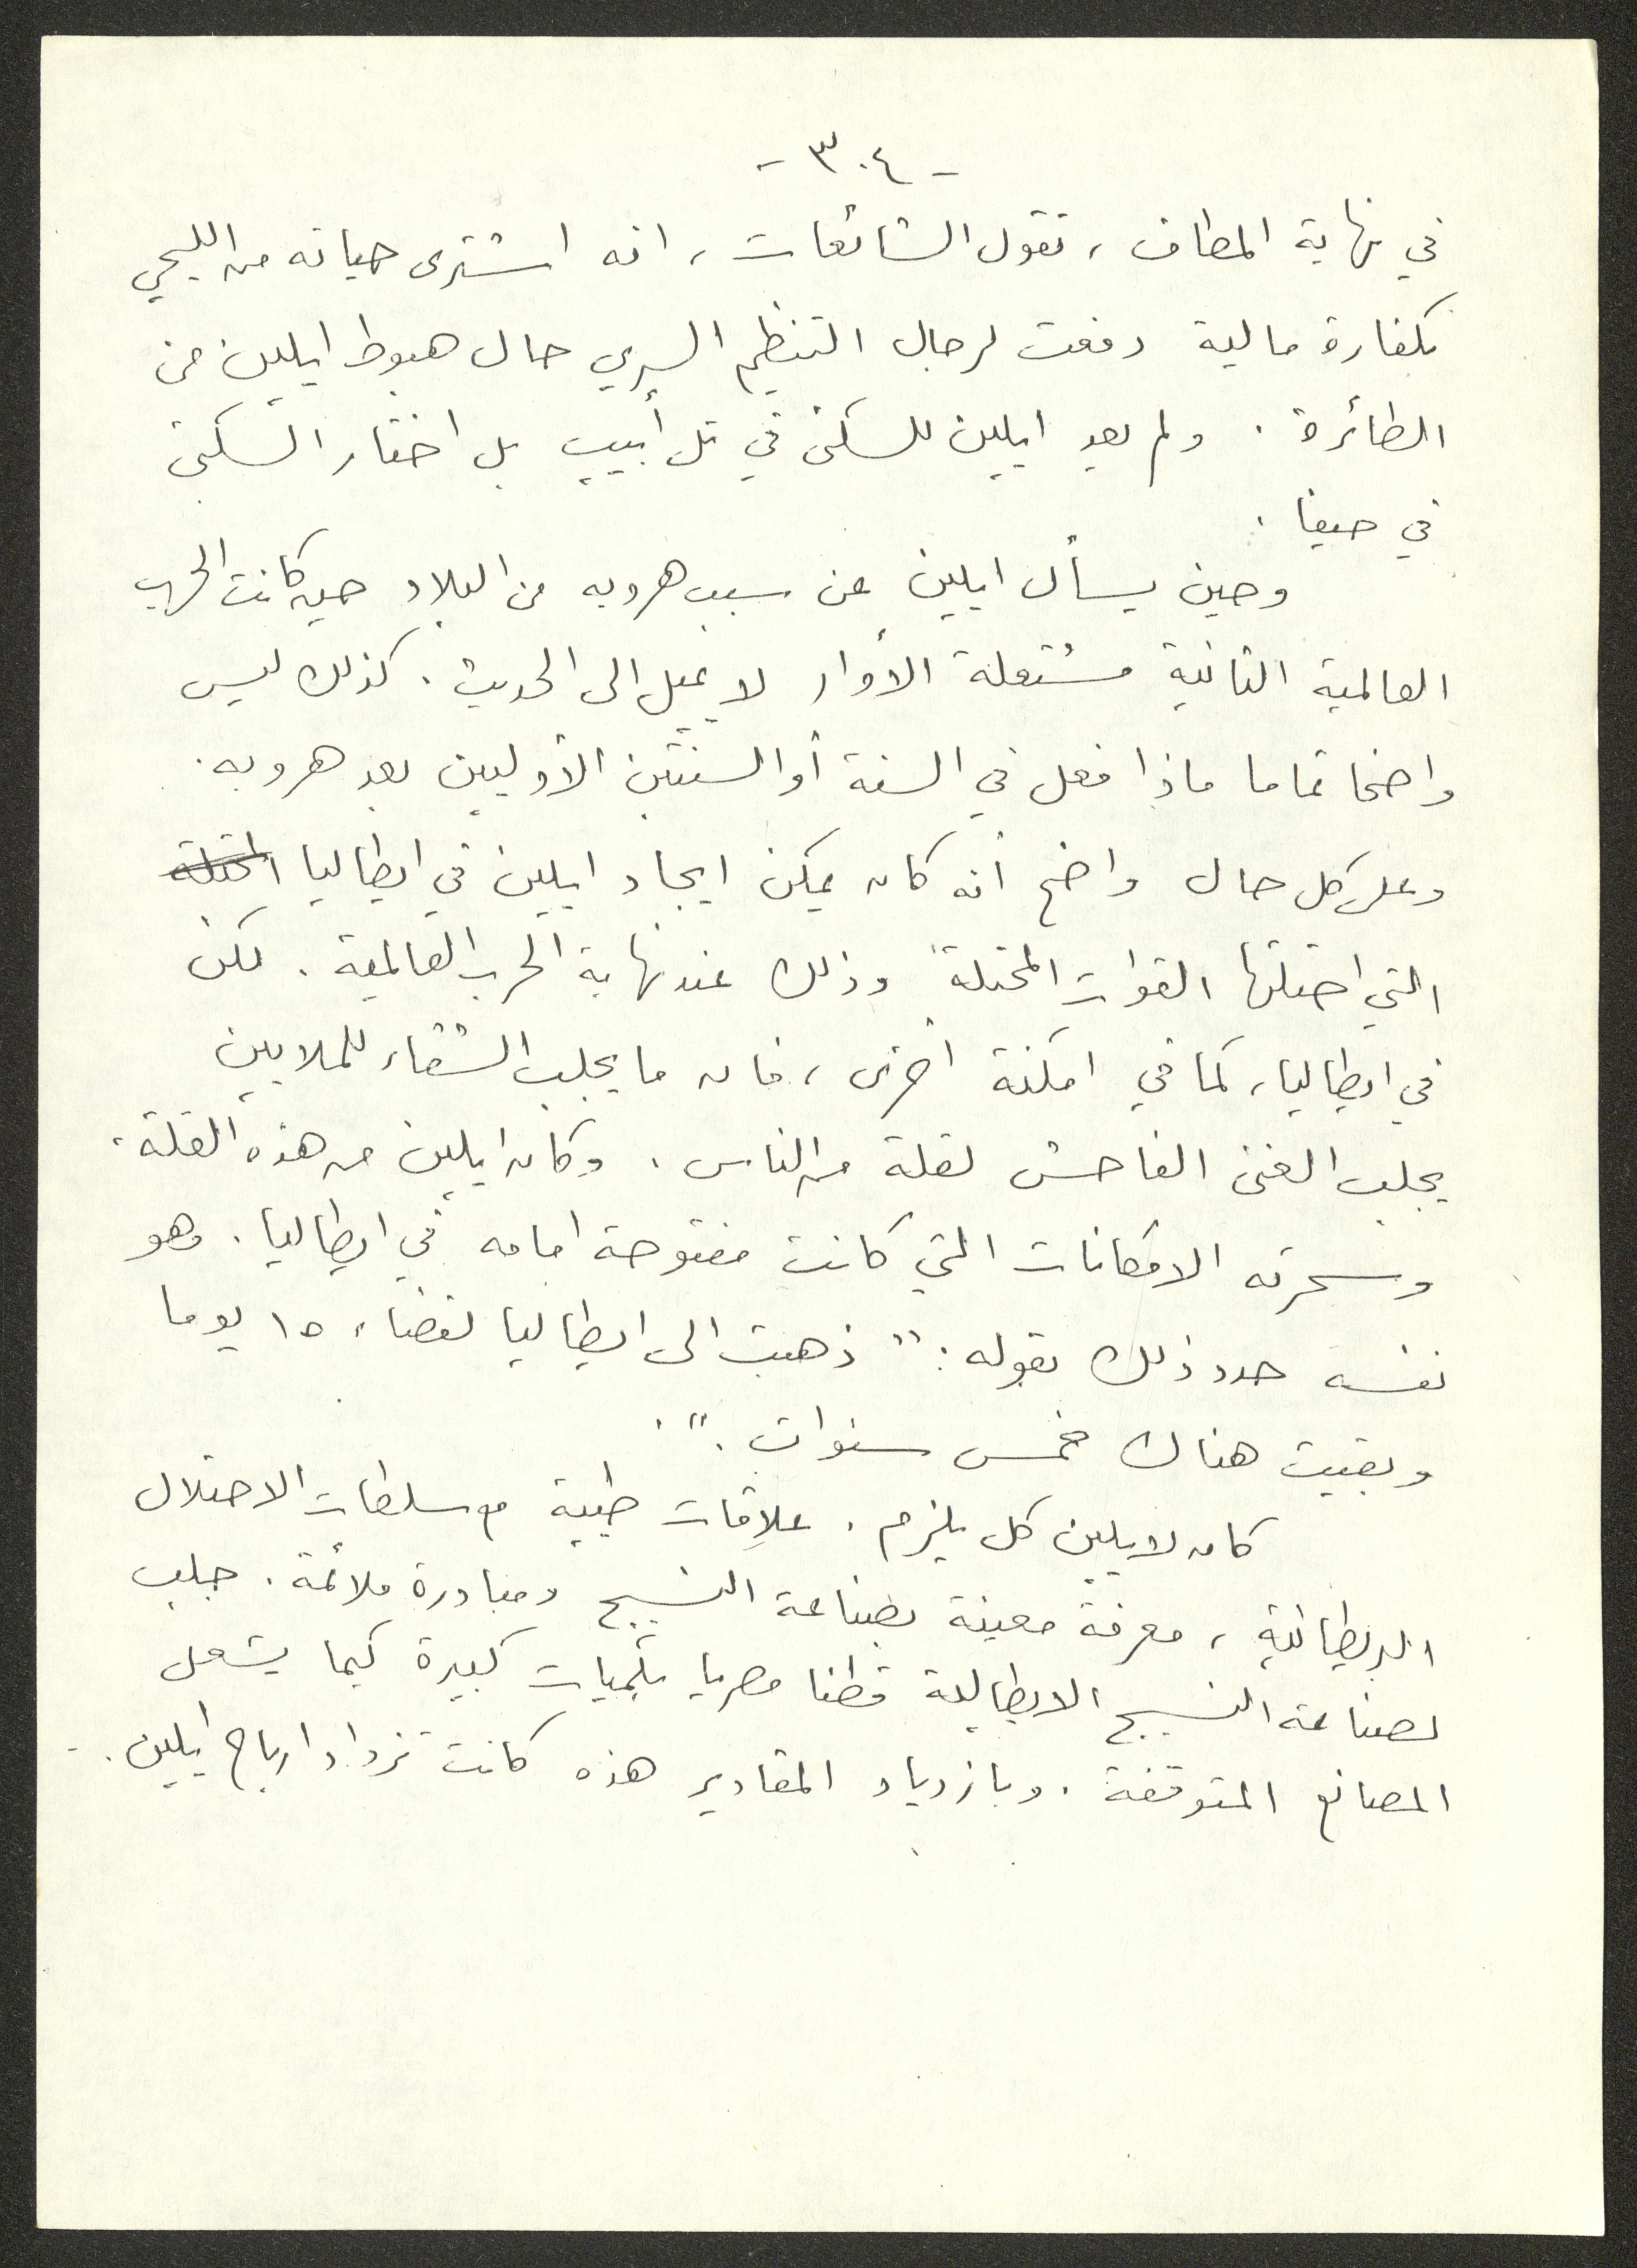 - ٣٠٤ -
في نهاية المطاف ، تقول الشائعات ، انه اشترى حياته من الليحي
بكفارة مالية دفعت لرجال التنظيم السري حال هبوط ايلين من
الطائرة . ولم يعد ايلين للسكن في تل أبيب بل اختار السكن
في حيفا .
وحين يسأل ايلين عن سبب هروبه من البلاد حين كانت الحرب
العالمية الثانية مشتعلة الأوار لا يميل الى الحديث . كذلك ليس
واضحا تماما ماذا فعل في السنة أو السنتين الأوليين بعد هروبه .
وعلى كل حال واضح أنه كان يمكن ايجاد ايلين في ايطاليا المحتلة
التي احتلتها القوات المحتلة وذلك عند نهاية الحرب العالمية . لكن
في ايطاليا ، كما في امكنة أخرى ، فان ما يجلب الشقاء للملايين
يجلب الغنى الفاحش لقلة من الناس . وكان ايلين من هذه القلة .
وسحرته الامكانات التي كانت مفتوحة امامه في ايطاليا . وهو
نفسه حدد ذلك بقوله : " ذهبت الى ايطاليا لقضاء ١٥ يوما
وبقيت هناك خمس سنوات . " .
كان لايلين كل يلزم . علاقات طيبة مع سلطات الاحتلال
البريطانية ، معرفة معينة بصناعة النسيج ومبادرة ملائمة . جلب
لصناعة النسيج الايطالية قطنا مصريا بكميات كبيرة كيما يشعل
المصانع المتوقفة . وبازدياد المقادير هذه كانت تزداد ارباح ايلين .